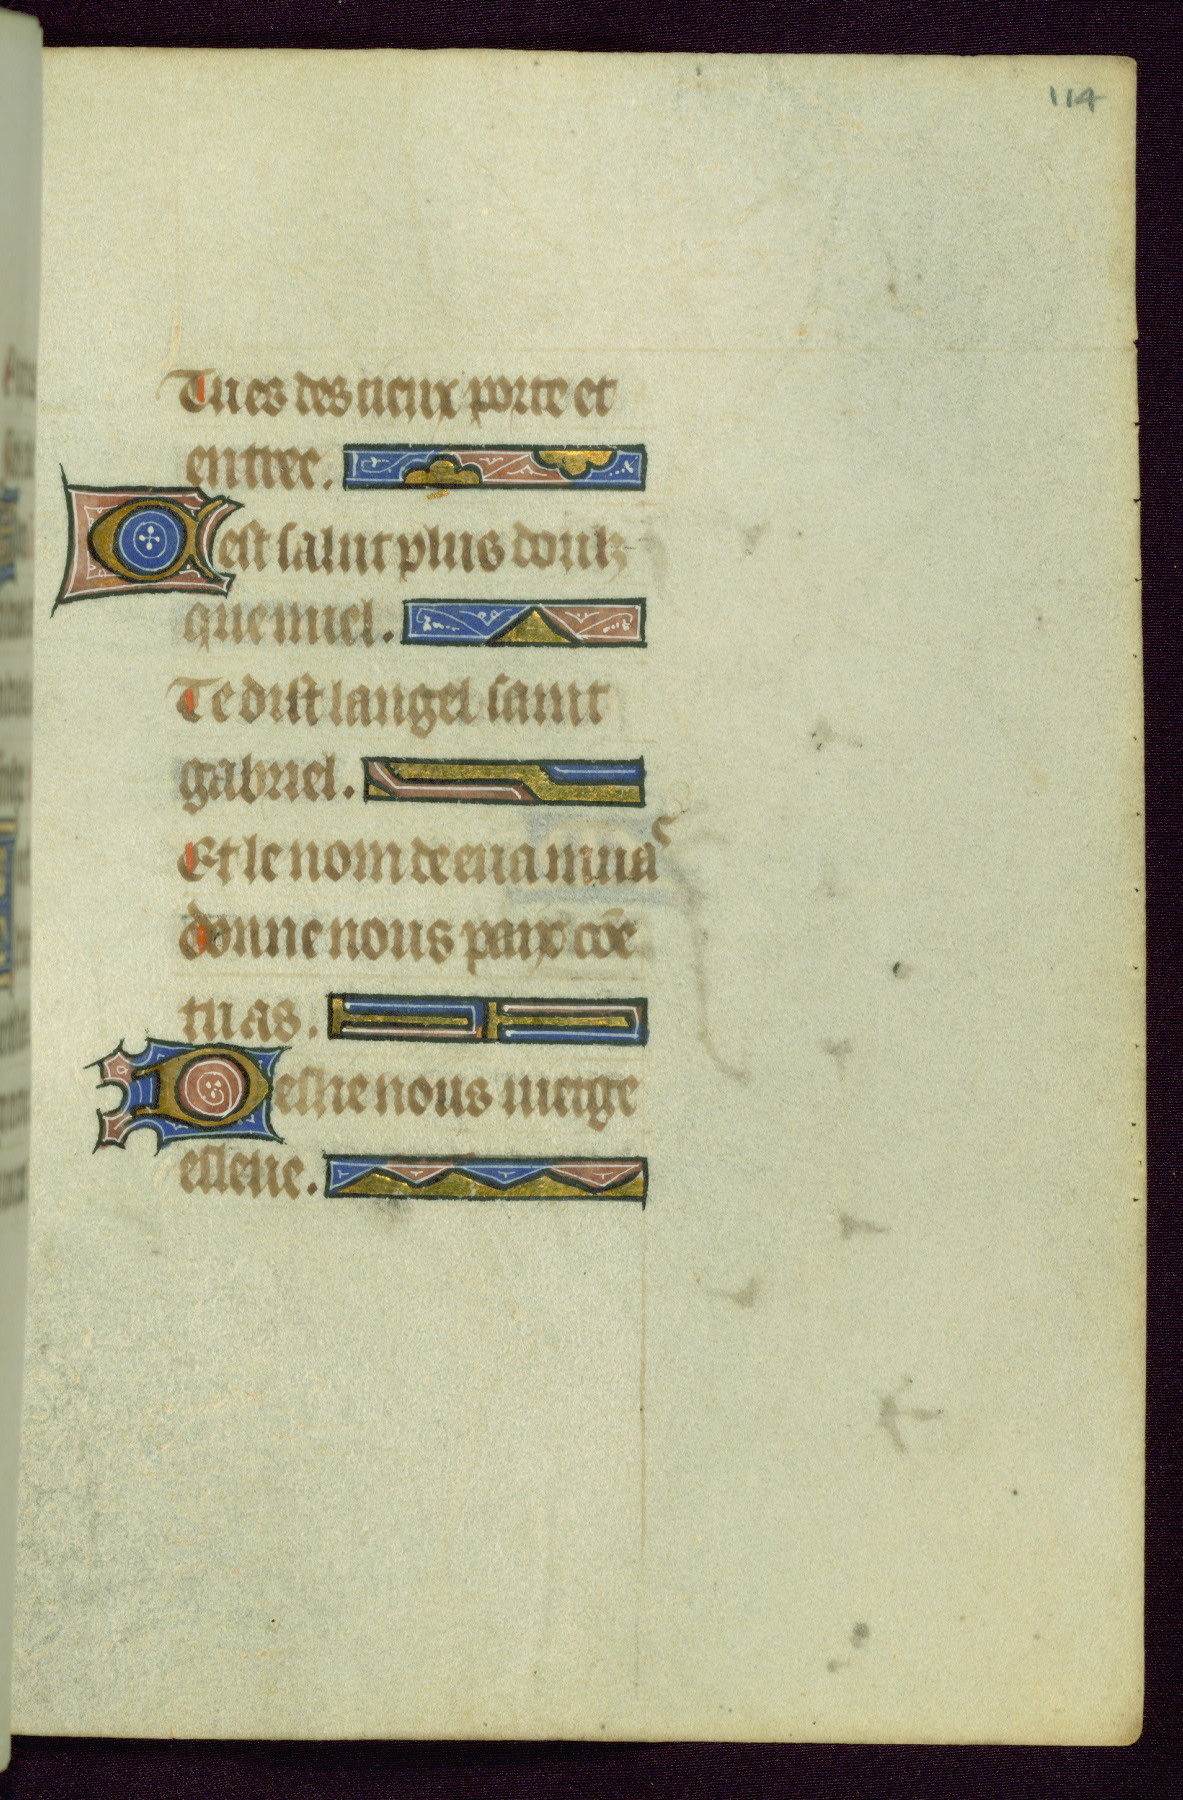 114
Tu es des cieux porte et
entree.
Cest salut plus doulz
que miel.
Te dist langel saint
gabriel.
Et le nom de eua mua
donne nous paix cōe
tu as.
Deslie nous uierge
esleue.